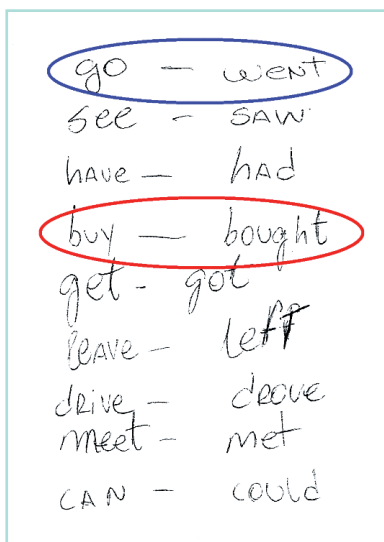 go – went
see – saw
have – had
buy – bought
get - got
leave – left
drive – drove
meet – met
can – could